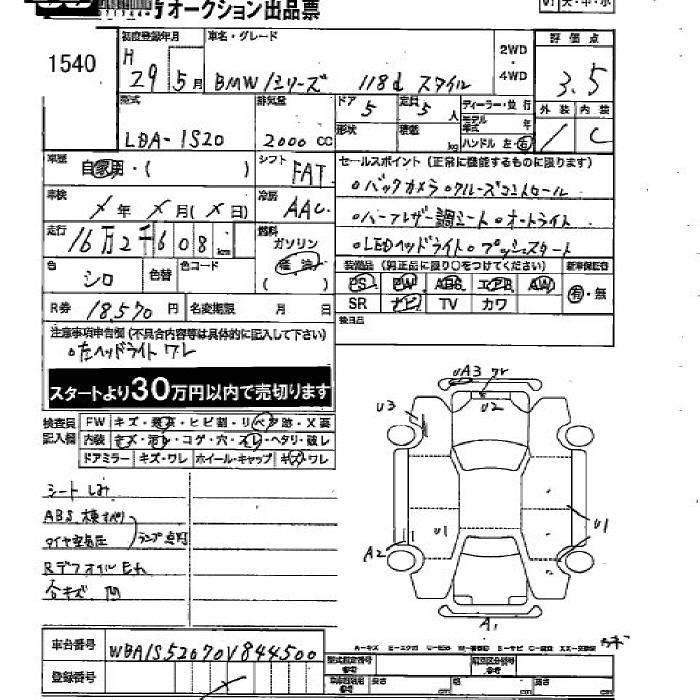 オークション出品票
1540
初度登録年月
車名・グレード
H 29 5月
BMW 1シリーズ 118d スタイル
2WD
・
4WD
評価点
3.5
外装 内装
C
型式
LDA-1S20
排気量
2000 CC
ドア 5
定員 5人
形状
積載 kg
ディーラー・並行
モデル年式 年
ハンドル 左・右
車歴
自家用・( )
シフト
FAT
セールスポイント(正常に機能するものに限ります)
○バックカメラ○クルーズコントロール
車検
X年 X月(X日)
冷房
AAC
○ハーフレザー調シート○オートライト
走行
16万2千608km
燃料
ガソリン
軽油
( )
○LEDヘッドライト○プッシュスタート
色
シロ
色替
色コード
装備品(純正品に限り○をつけてください)
新車保証書
PS PW ABS エアB AW
SR ナビ TV カワ
有・無
R券 18,570円
名変期限 月 日
後日品
注意事項申告欄(不具合内容等は具体的に記入して下さい)
○左ヘッドライトワレ
スタートより30万円以内で売切ります
検査員
記入欄
FW キズ・ヒビ割・リペア跡・X要
内装 キズ・汚レ・コゲ・穴・スレ・ヘタリ・破レ
ドアミラー キズ・ワレ ホイール・キャップ キズ・ワレ
シートしみ
ABS、横すべり
タイヤ空気圧
ランプ点灯
Rデフオイルモれ
UA3 ワレ
U2
U3
U1
U1
A2
A1
車台番号
WBA1S52070V844500
登録番号
型式指定番号
類別区分番号
長さ cm
幅 cm
高さ cm